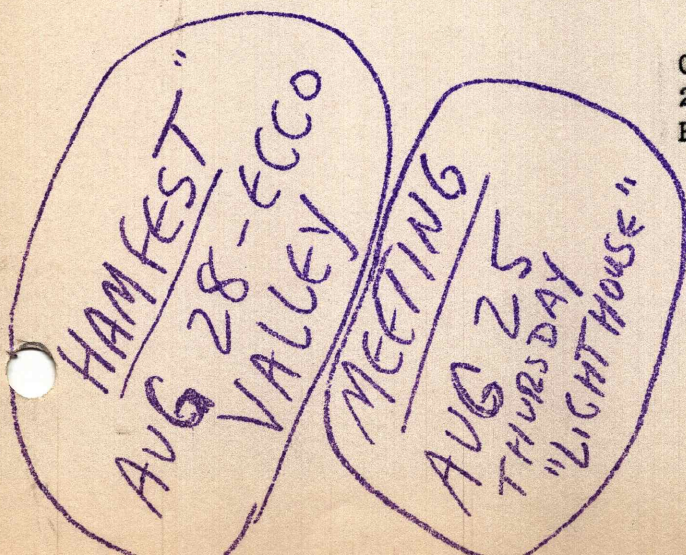 HAMFEST"
AUG 28-ECCO
VALLEY
MEETING
AUG 25
THURSDAY
"LIGHTHOUSE"